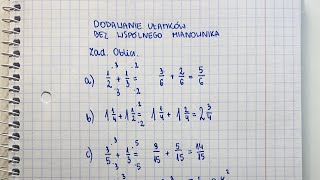 DODAWANIE UŁAMKÓW
BEZ WSPÓLNEGO MIANOWNIKA
Zad. Oblicz.
a) 1/2 ·3/·3 + 1/3 ·2/·2 = 3/6 + 2/6 = 5/6
b) 1 1/4 + 1 1/2 ·2/·2 = 1 1/4 + 1 2/4 = 2 3/4
c) 3/5 ·3/·3 + 1/3 ·5/·5 = 9/15 + 5/15 = 14/15